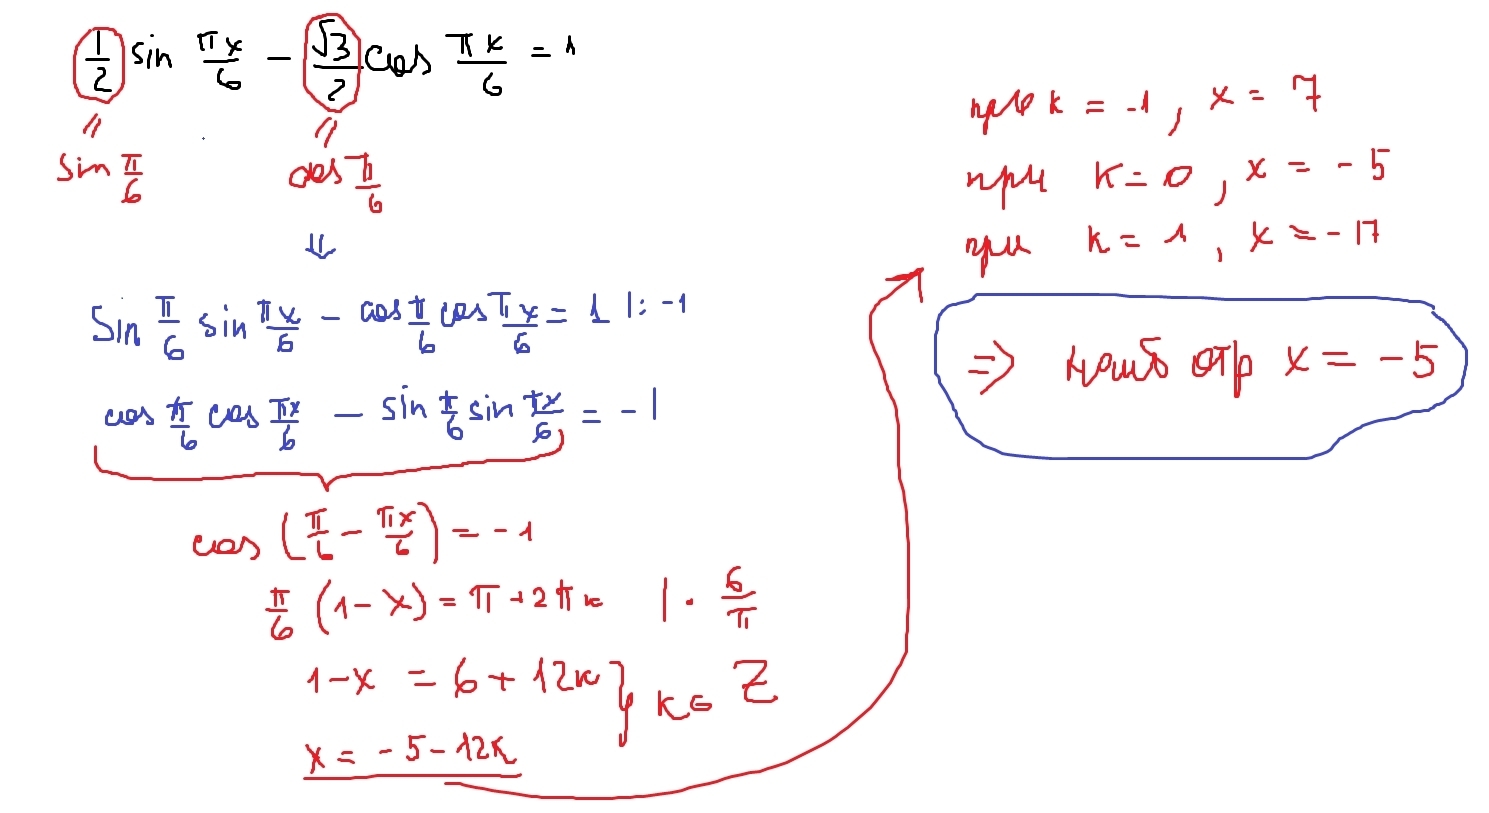 1/2 sin πx/6 − √3/2 cos πx/6 = 1
= sin π/6 = cos π/6
⇓
Sin π/6 sin πx/6 − cos π/6 cos πx/6 = 1 |: -1
cos π/6 cos πx/6 − sin π/6 sin πx/6 = -1
cos (π/6 − πx/6) = -1
π/6 (1-x) = π + 2πk | · 6/π
1-x = 6 + 12k } k ∈ Z
x = -5 - 12k
при k = -1, x = 7
при k = 0, x = -5
при k = 1, x = -17
=> наиб отр x = -5